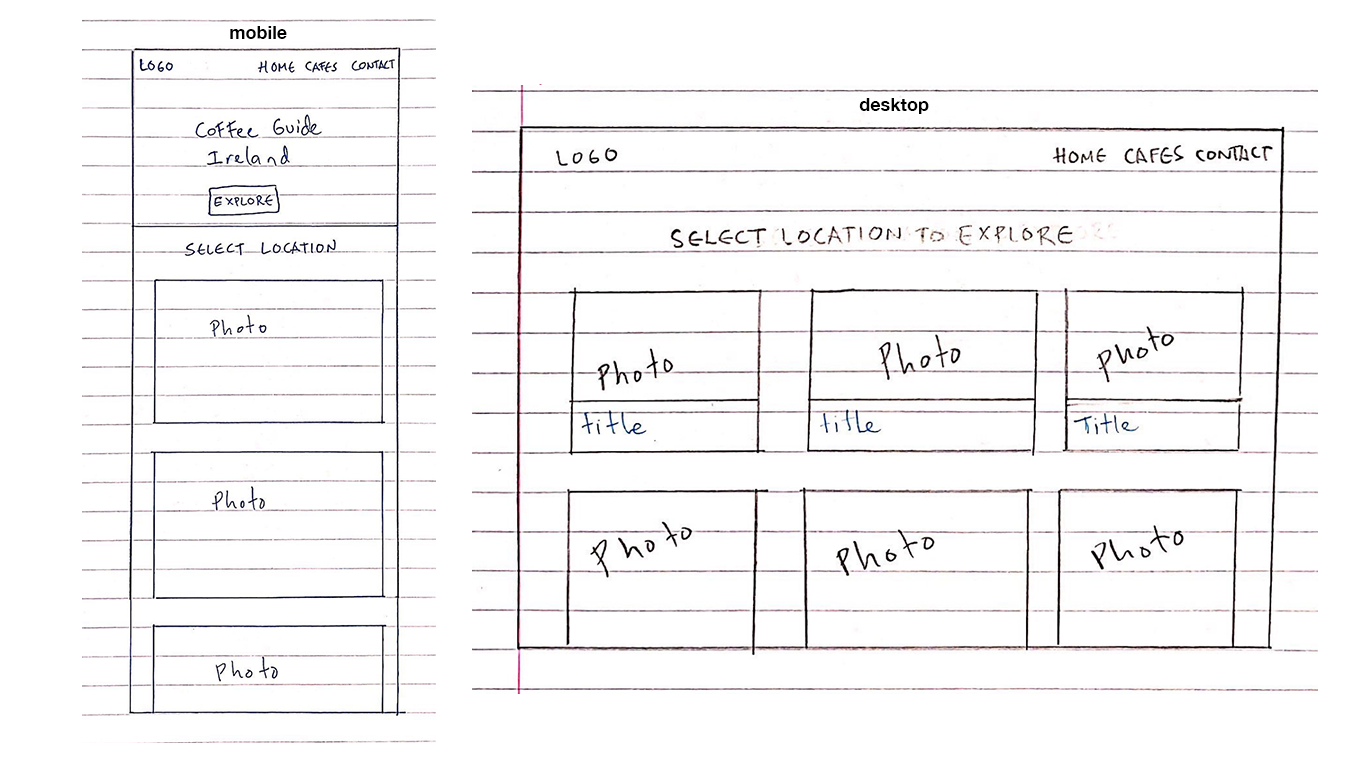 mobile
LOGO HOME CAFES CONTACT
Coffee Guide
Ireland
EXPLORE
SELECT LOCATION
Photo
Photo
Photo
desktop
LOGO HOME CAFES CONTACT
SELECT LOCATION TO EXPLORE
Photo Photo Photo
title title Title
Photo Photo Photo